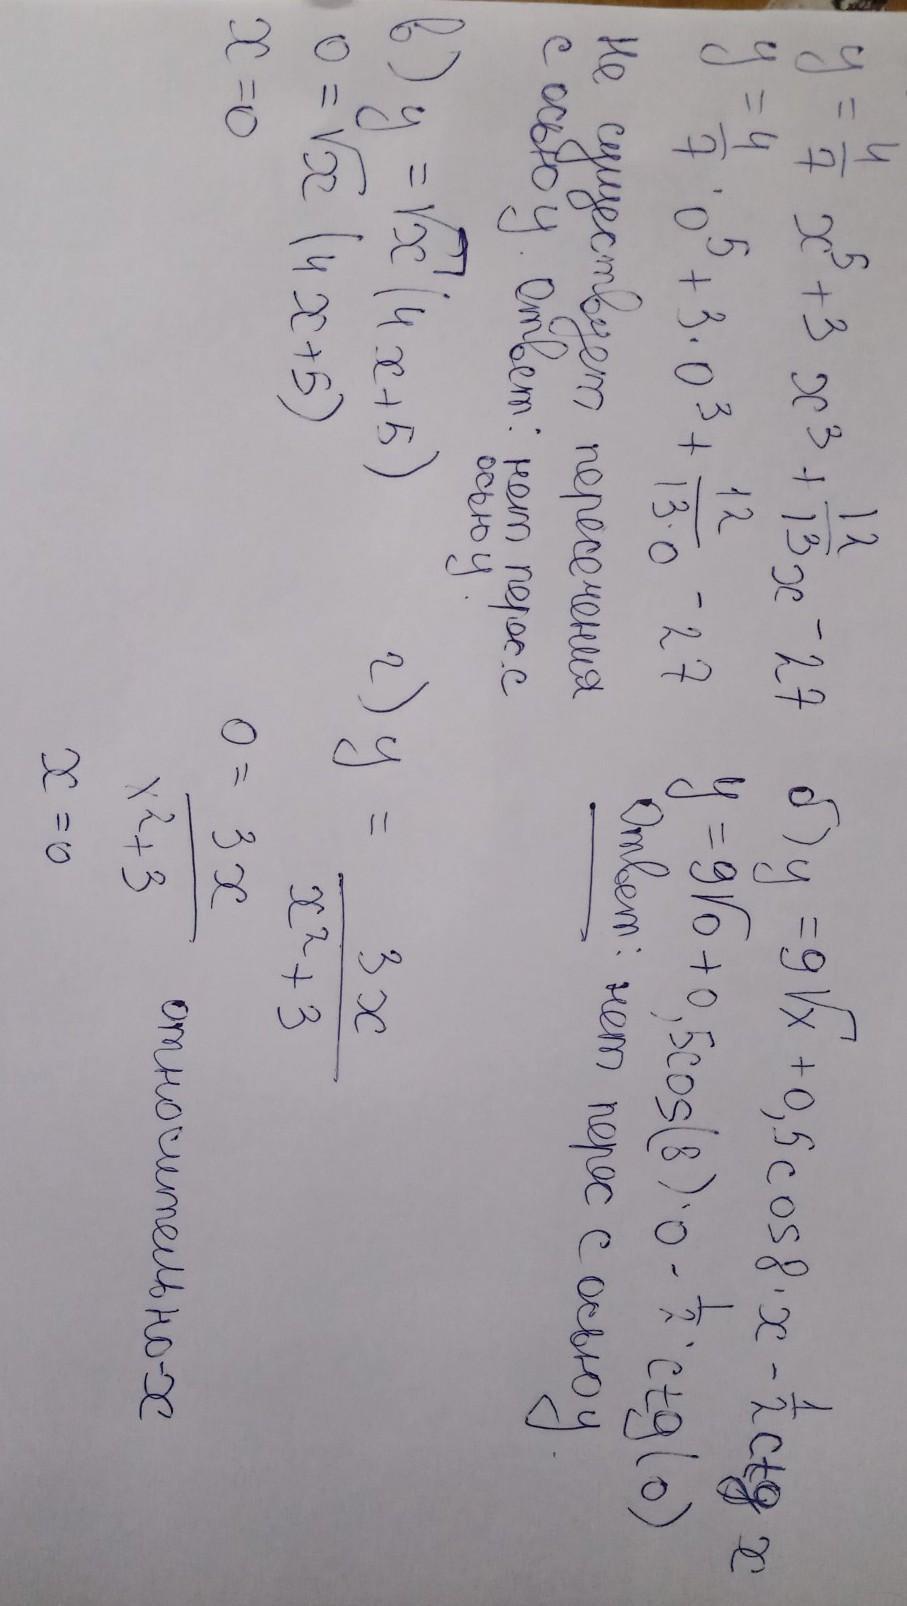 y = 4/7 x⁵ + 3x³ + 12/13x - 27
y = 4/7 · 0⁵ + 3 · 0³ + 12/13·0 - 27
Не существует пересечения
с осью y. Ответ: нет перес с
осью y.
б) y = 9√x + 0,5cos8·x - 1/2 ctg x
y = 9√0 + 0,5cos(8)·0 - 1/2 · ctg(0)
Ответ: нет перес с осью y.
в) y = √x (4x+5)
0 = √x (4x+5)
x = 0
г) y = 3x/x²+3
0 = 3x/x²+3
относительно-x
x = 0